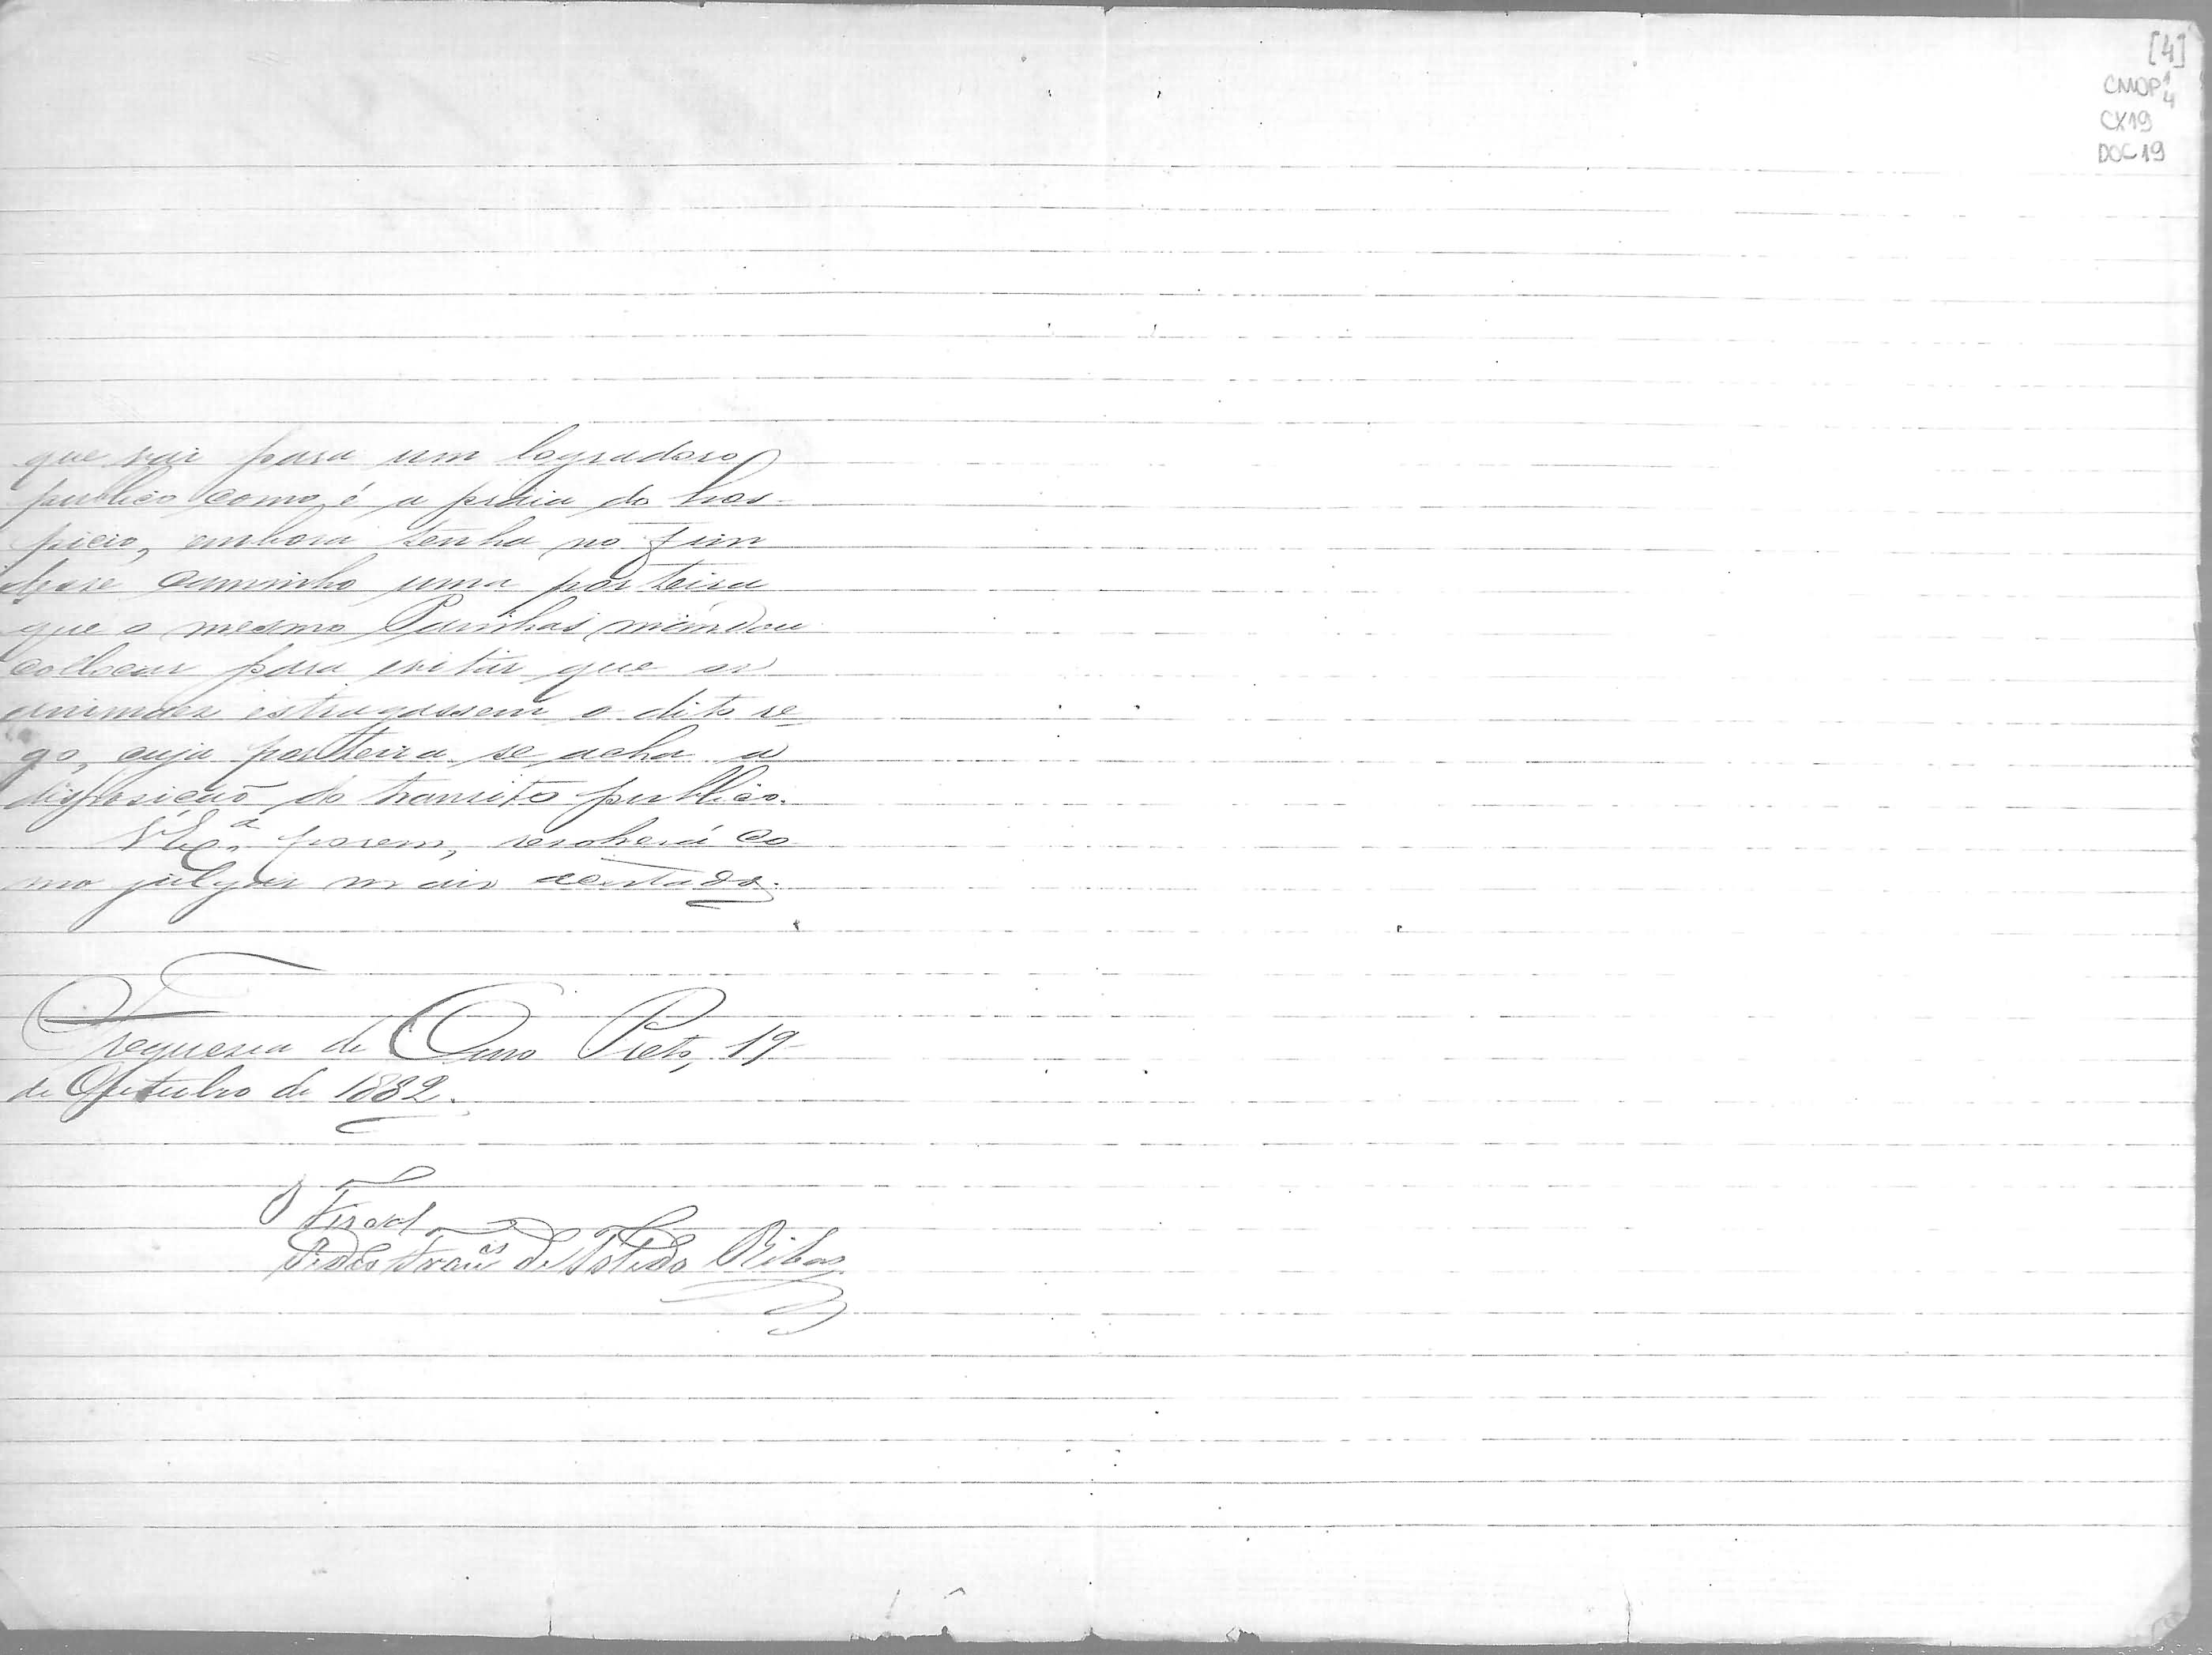 [4]
CMOP 1/4
CX19
DOC 19
que vai para um logradoro
publico como é a praia do hos-
picio, embora tenha no fim
desse caminho uma porteira
que o mesmo Parinhas mandou
collocar para evitar que os
animaes estragassem o dito re-
go, cuja porteira se acha a
disposicaõ do transito publico.
V. Ex.ª porem, resolverá co
mo julgar mais acertado.
Freguesia de Ouro Preto, 19
de Outubro de 1882.
O Fiscal
Pedro Fran.co de Toledo Ribas